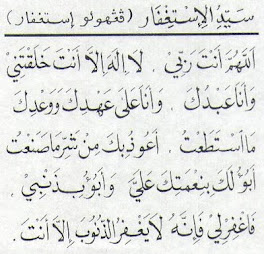 سَيِّدُ الْإِسْتِغْفَار (ڤڠهولو إستغفار)
اَللّٰهُمَّ أَنْتَ رَبِّيْ . لَا إِلٰهَ إِلَّا أَنْتَ خَلَقْتَنِيْ
وَأَنَا عَبْدُكَ . وَأَنَا عَلَى عَهْدِكَ وَوَعْدِكَ
مَا اسْتَطَعْتُ . أَعُوْذُ بِكَ مِنْ شَرِّ مَا صَنَعْتُ
أَبُوْءُ لَكَ بِنِعْمَتِكَ عَلَيَّ وَأَبُوْءُ بِذَنْبِيْ .
فَاغْفِرْ لِيْ فَإِنَّهُ لَا يَغْفِرُ الذُّنُوْبَ إِلَّا أَنْتَ .